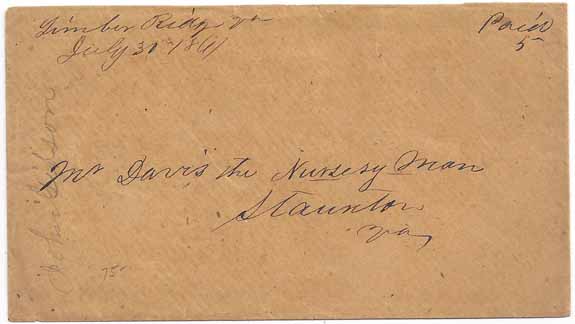 Timber Ridge Va
July 31 1861
Paid
5
Mr Davis the Nursery Man
Staunton
Va
John Wilson
75